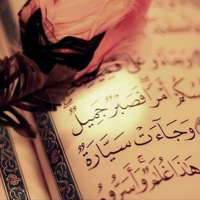 سُكُمْ أَمْرًا فَصَبْرٌ جَمِيلٌ
وَجَآءَتْ سَيَّارَةٌ
هَٰذَا غُلَٰمٌ ۚ وَأَسَرُّو